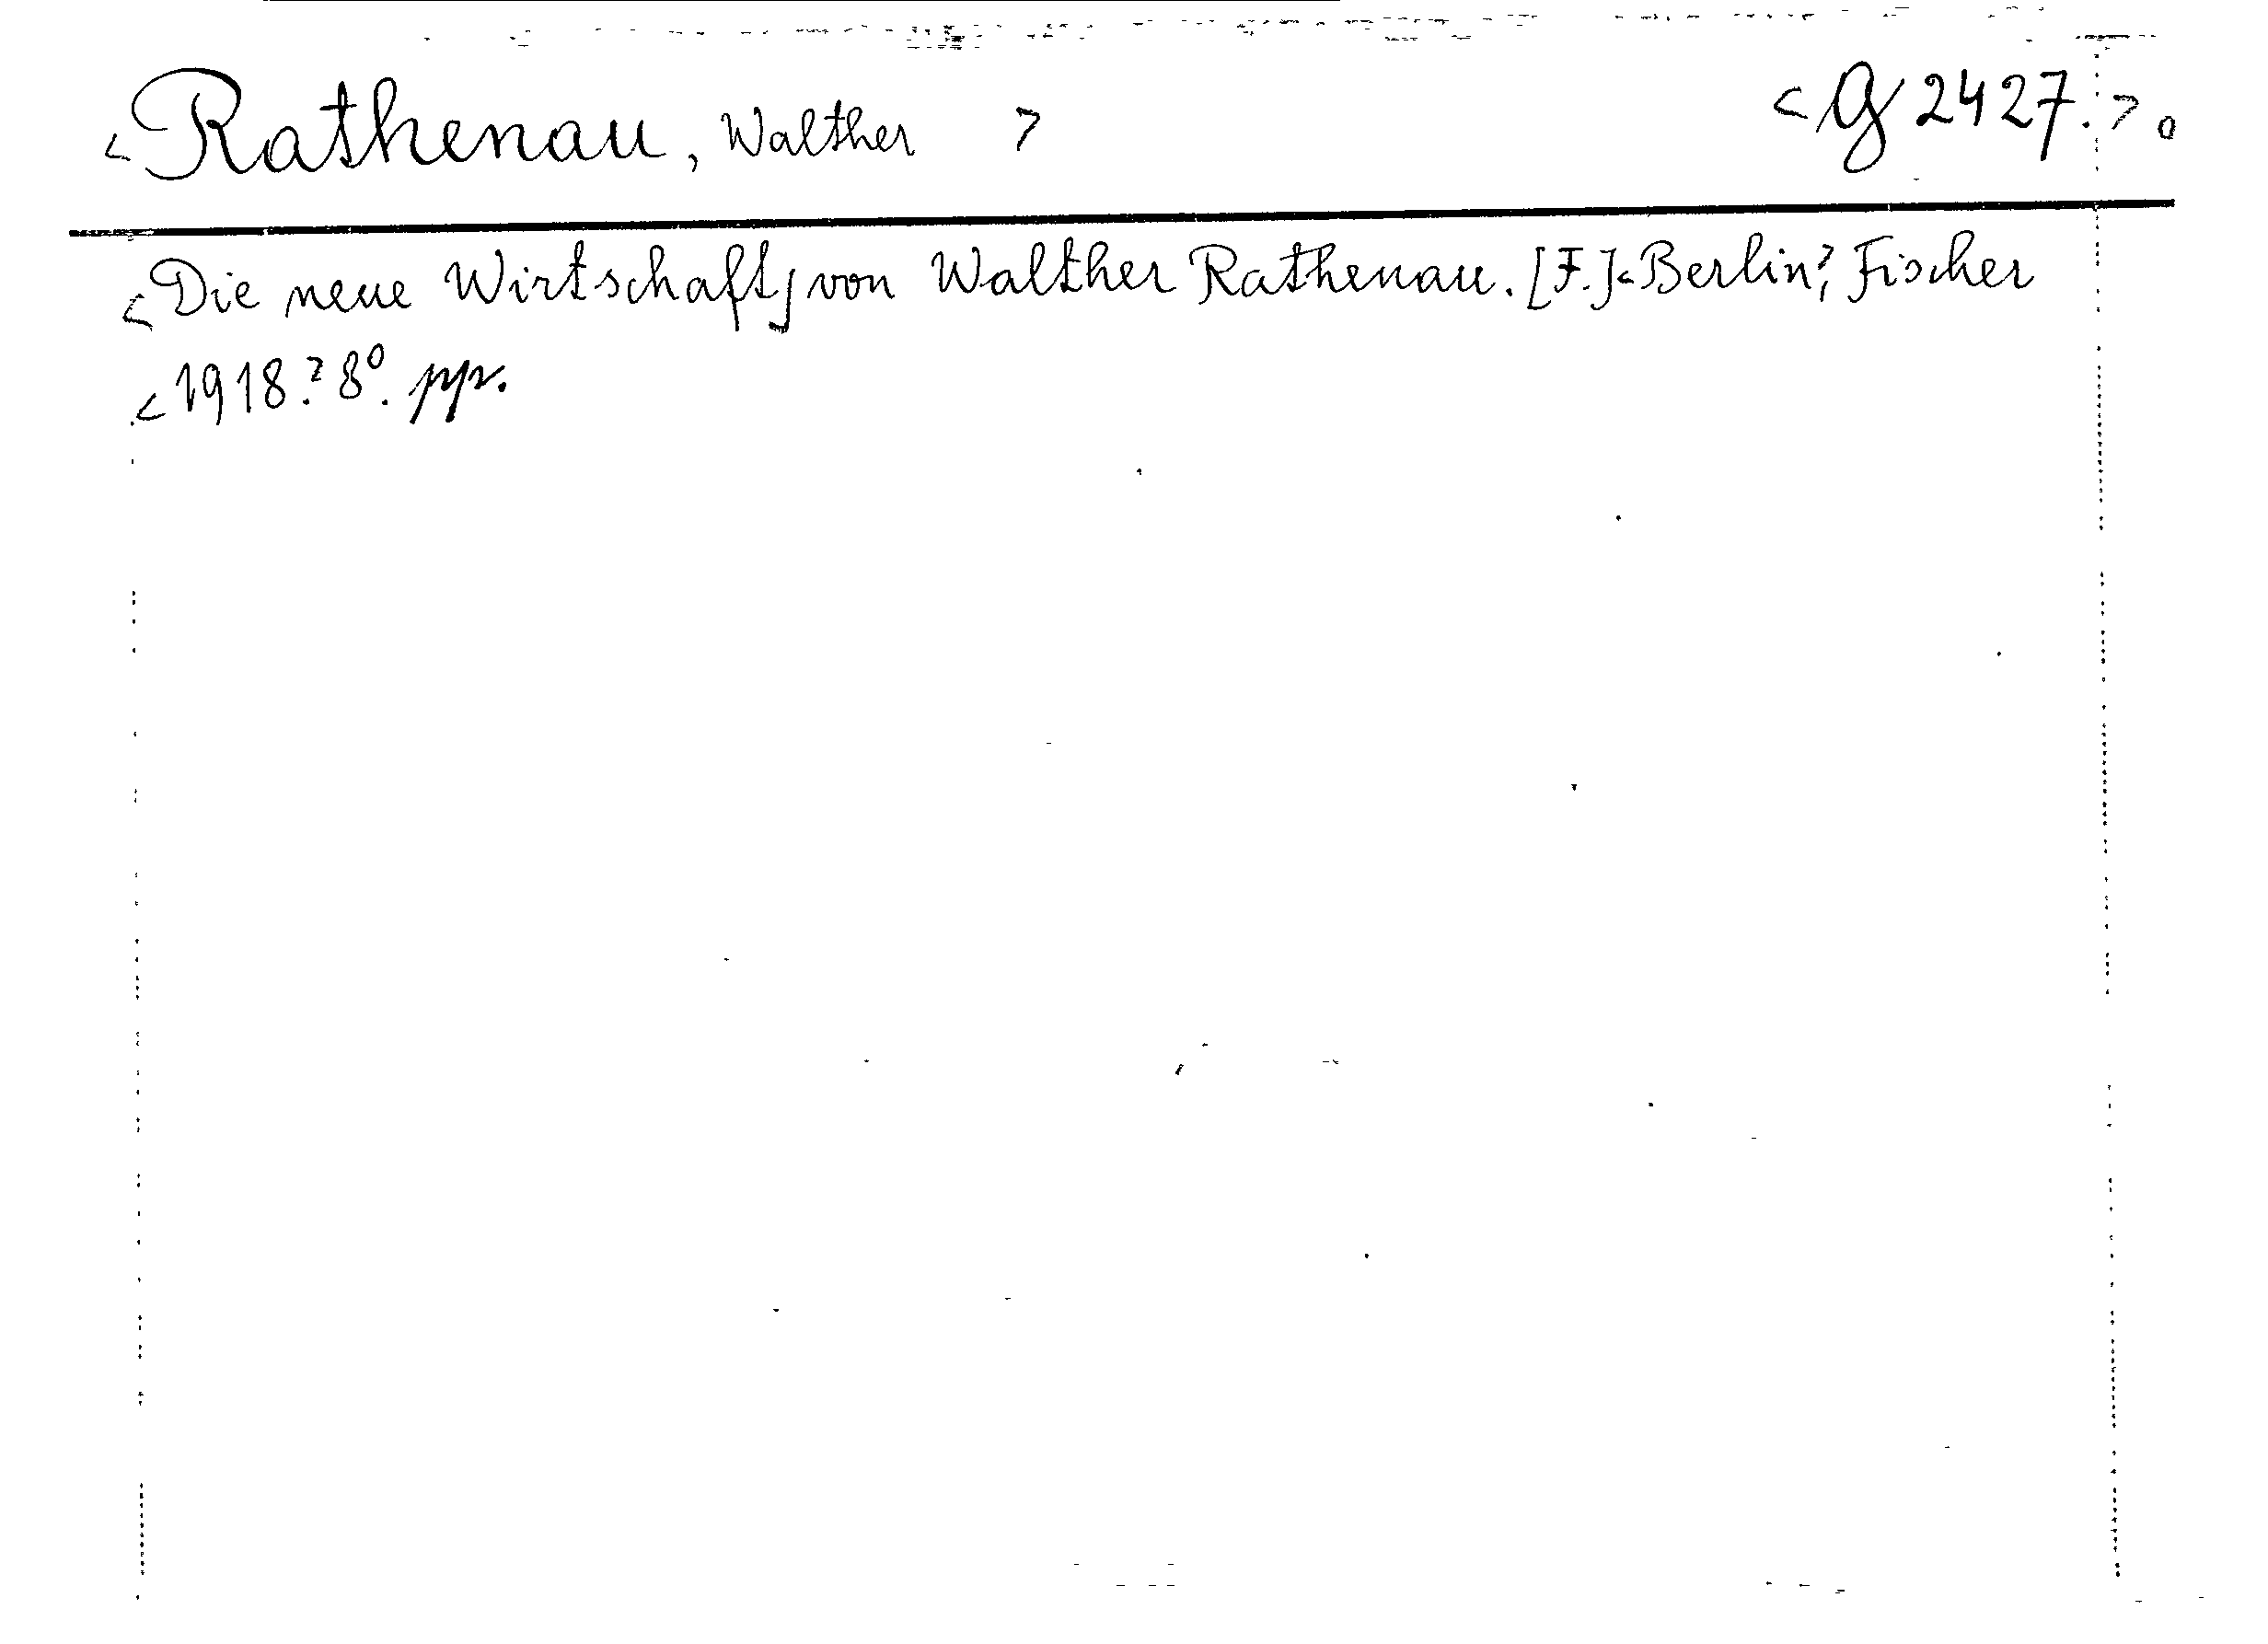 <Rathenau, Walther > <G 2427.>o
<Die neue Wirtschaft, von Walther Rathenau. [F.]<Berlin>, Fischer
<1918.> 8º. pp.